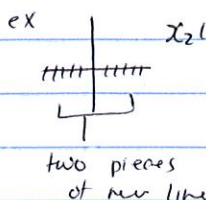 ex
x₂(
two pieces
of line